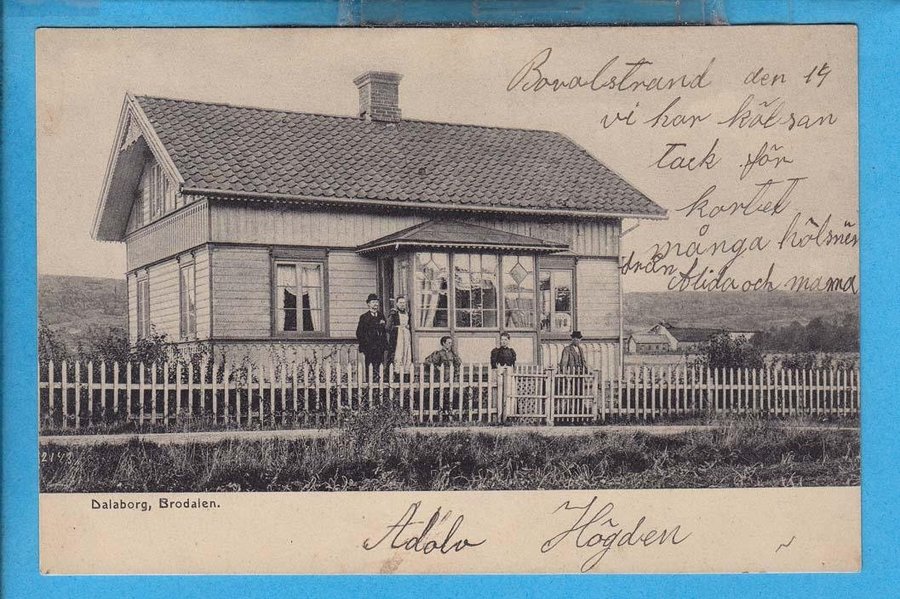 Bovalstrand den 14
vi har kölsan
tack för
kortet
många hölsnis
från Alida och mama
2142
Dalaborg, Brodalen.
Adolv Högden